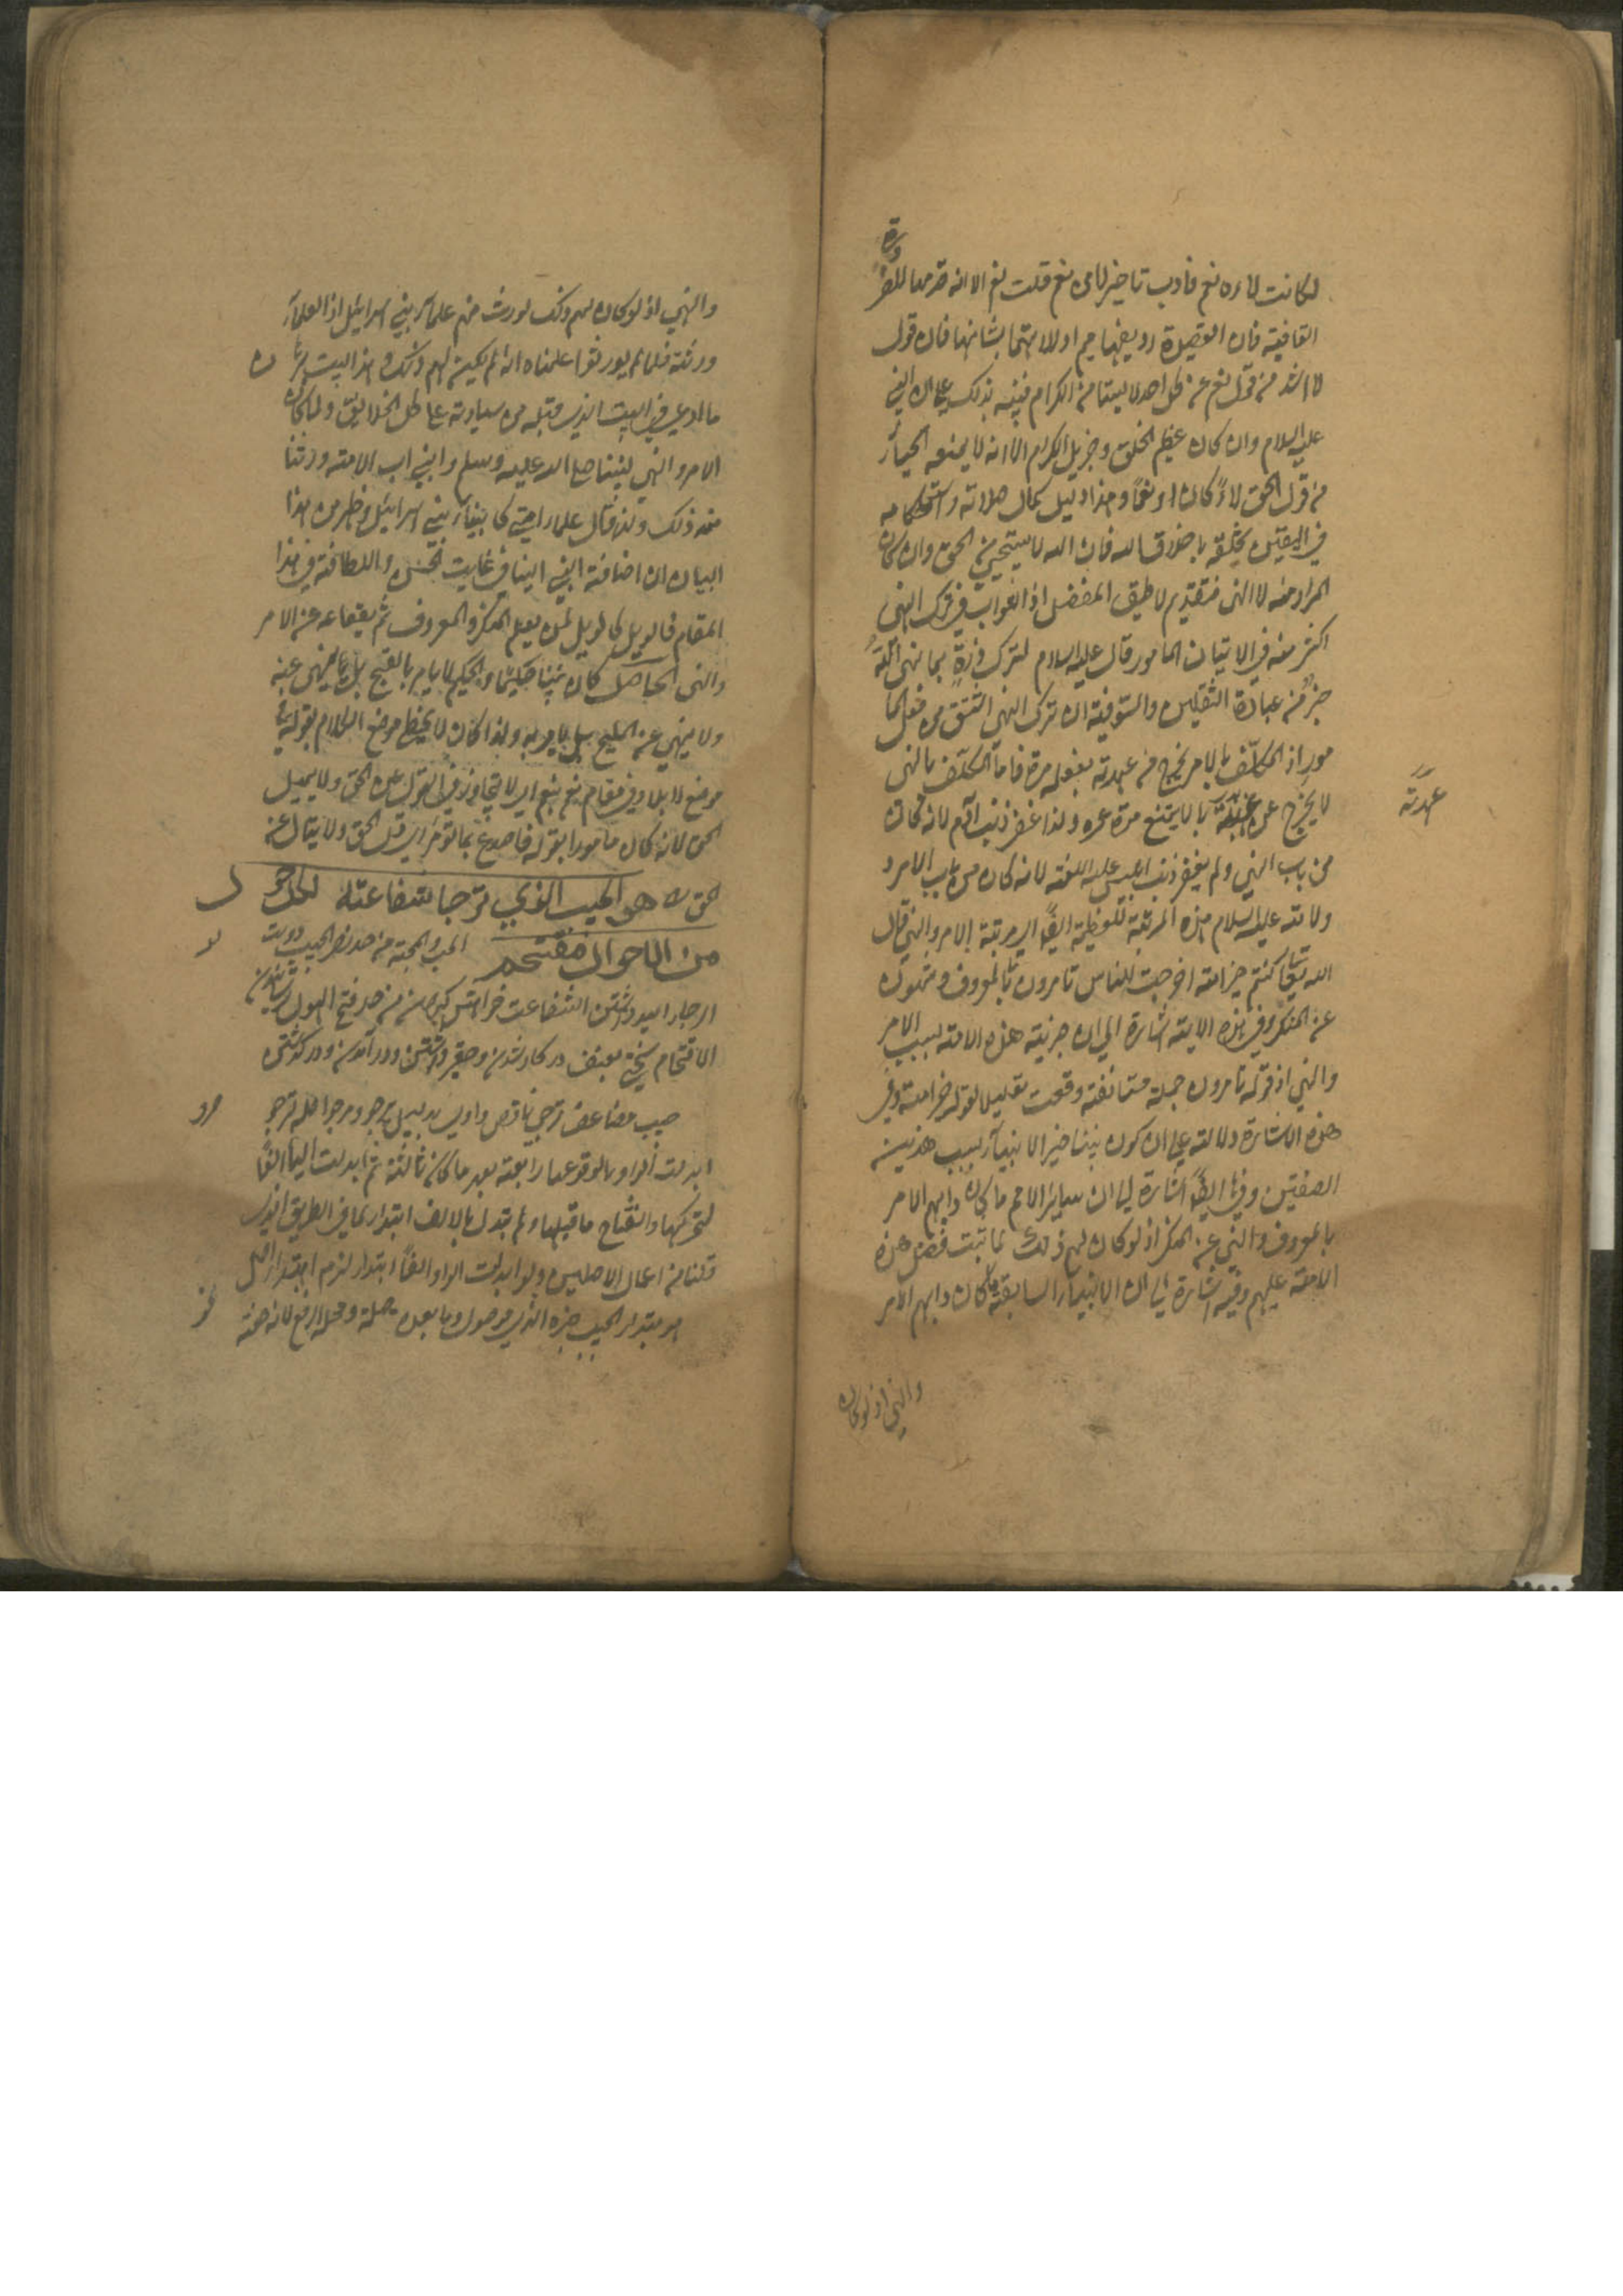 لكانت لاءه نعم فادب تاخير لا من نعم قلت نعم الا انه قدمها لضرورة
القافية فان القصيدة رويها ميم اولا لاهتمام بشانها فان قول
لا اشد من قول نعم عن كل احد لا سيما من الكرام فنبه بذلك على ان النبي
عليه السلام وان كان عظيم الخلق وجزيل الكرام الا انه لا يمنعه الحياء
من قول الحق لاءً كان او نعمًا وهذا دليل كمال صلابته واستحكامه
في اليقين تخلقه باخلاق الله فان الله لا يستحيي من الحق وان كان
المراد منه لا النهي فتقديم لا طريق المفضل اذ الثواب في ترك النهي
اكثر منه في الاتيان المامور قال عليه السلام لترك ذرةٍ مما نهى الله
خيرٌ من عبادة الثقلين والتوفيق ان ترك النهي اشق من فعل الما
مور اذ المكلّف بالامر يخرج من عهدته بفعله مرة فاما المكلّف بالنهي
لا يخرج عن عهدته بالا يمتنع مدة عمره ولذا غفر ذنب آدم لانه كان
عهدته
من باب النهي ولم يغفر ذنب ابليس عليه اللعنة لانه كان من باب الامر و
ولامته عليه السلام هذه المرتبة العظيمة ايضًا اي مرتبة الامر والنهي قال
الله تعالى كنتم خير امة اخرجت للناس تامرون بالمعروف وتنهون
عن المنكر وفي هذه الاية اشارة الى ان خيرية هذه الامة بسبب الامر
والنهي اذ قوله تامرون جملة مستانفة وقعت تعليلا لقوله خير امة وفي
هذه الاشارة دلالة على ان كون نبينا خير الانبياء بسبب هذين
الصفتين وفيها ايضًا اشارة الى ان سائر الامم ما كان دابهم الامر
بالمعروف والنهي عن المنكر اذ لو كان لهم ذلك لما ثبت فضل هذه
الامة عليهم وفيه اشارة الى ان الانبياء السابقة ما كان دابهم الامر
والنهي اذ لو كان
والنهي اذ لو كان لهم ذلك لورث منهم علماء بني اسرائيل اذ العلماء
ورثته فلما لم يورثوا علمناه انه لم يكن لهم ذلك وهذا البيت
ما ادعى في البيت الذي قبله من سيادته على كل الخلايق ولما كان
الامر والنهي لنبينا صلى الله عليه وسلم والنبي اب الامة ورثنا
منه ذلك ولذا قال علماء امتي كانبياء بني اسرائيل وظهر من هذا
البيان ان اضافة النبي الينا في غايت الحسن واللطافة في هذا
المقام فالويل كالويل لمن يعلم المنكر والمعروف ثم يتقاعد عن الامر
والنهي الحاصل كان نبينا حكيمًا والحكيم لا يامر بالقبيح بل ينهى عنه
ولا ينهي عن المليح بل يامر به ولذا كان لا يخطئ موضع الكلام بقوله
موضع لا بلا وفي مقام نعم بنعم اي لا يتجاوز في القول عن الحق ولا يميل
الحق لانه كان مامورا بقوله فاصدع بما تؤمر اي قل الحق ولا تمال عن
الحق هو الحبيب الذي ترجا شفاعته لكل هول
من الاهوال مقتحم المحب والمحبة من حد نصر الحبيب دوست
الرجاء اميد داشتن الشفاعت خواهش كردن من حد فتح الهول ترسانيدن
الاقتحام بسختي بعنف در كار شدن وحقير داشتن ودر آمدن ودر گذشتن
حبيب مضاعف ترجي ناقص واوي بدليل يرجو ومرجوا اصله ترجو
ابدلت الواو ياء لوقوعها رابعة بعد ما كانت ثالثة ثم ابدلت الياء الفًا
لتحركها وانفتاح ما قبلها ولم تبدل بالالف ابتداء لما في الطريق الذي
قلنا من اعمال الاصلين ولو ابدلت الواو الفًا ابتداء لزم
هو مبتدا والحبيب خبره الذي موصول وما بعده صلة ومحله الرفع لانه صفة